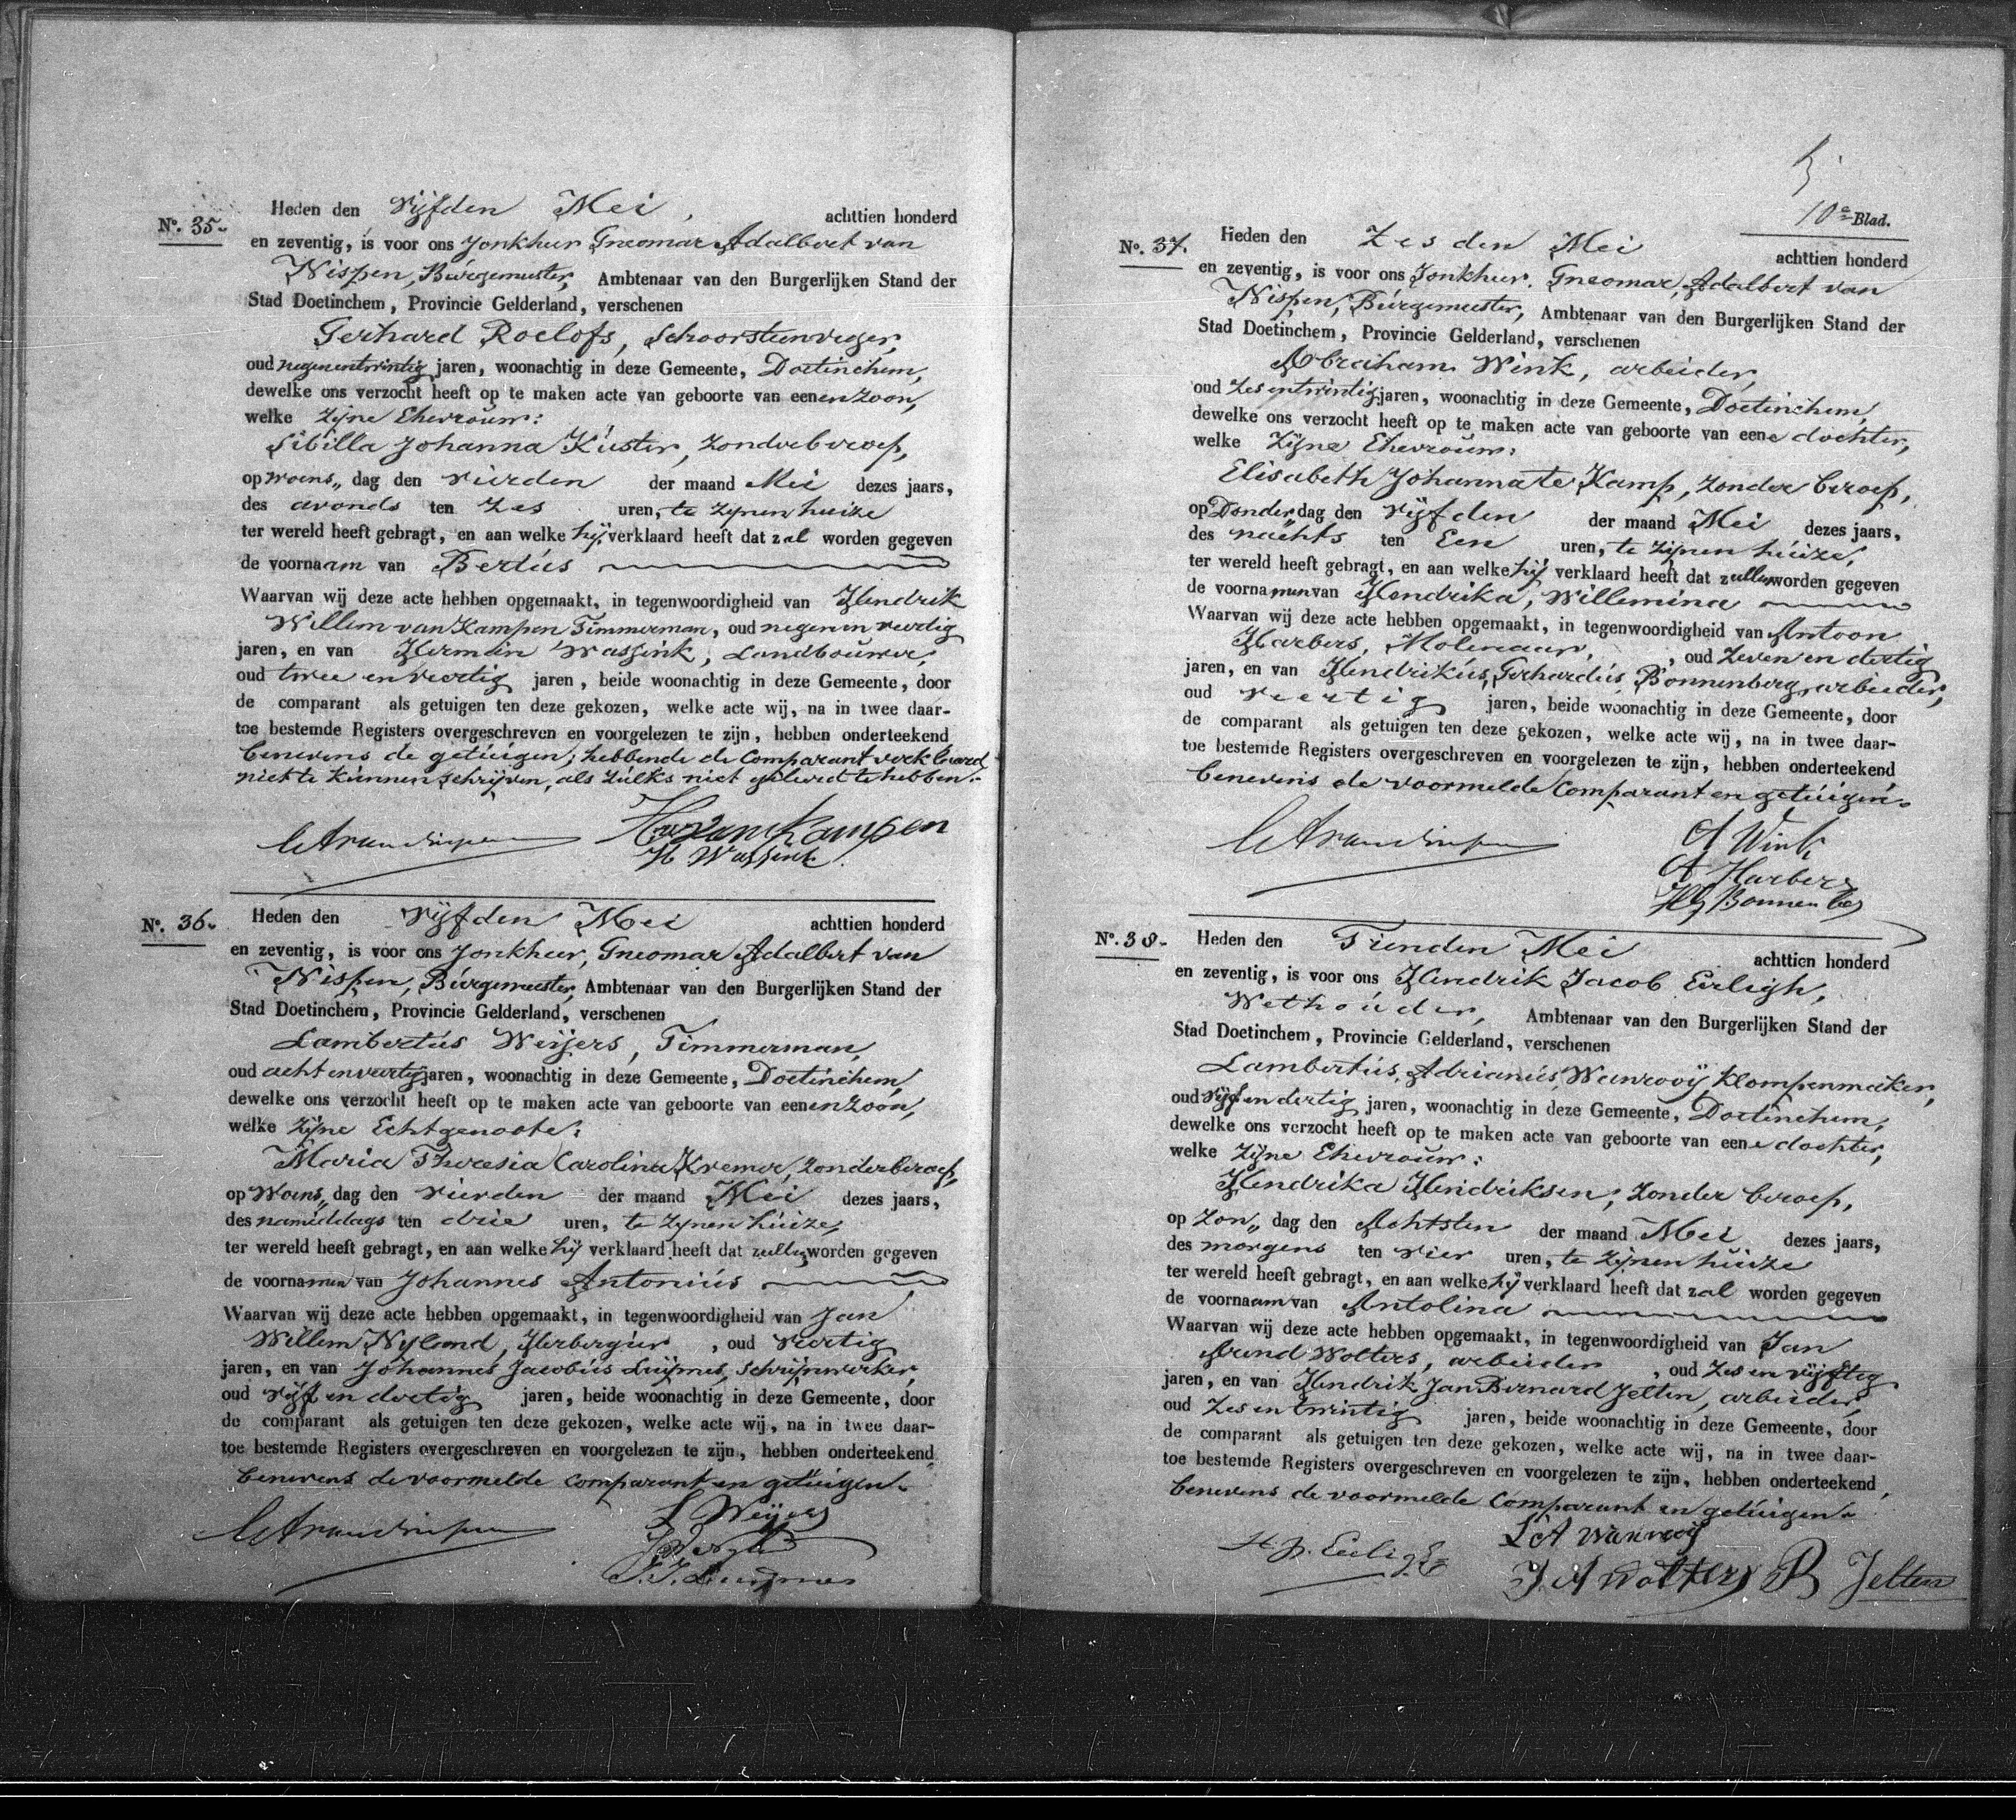 No. 35. Heden den vijfden Mei, achttien honderd
en zeventig, is voor ons Jonkheer Gneomar Adalbert van
Nispen, Burgemeester, Ambtenaar van den Burgerlijken Stand der
Stad Doetinchem, Provincie Gelderland, verschenen
Gerhard Roelofs, Schoorsteenveger,
oud negenentwintig jaren, woonachtig in deze Gemeente, Doetinchem,
dewelke ons verzocht heeft op te maken acte van geboorte van eenen zoon,
welke zijne Ehevrouw:
Sibilla Johanna Küster, zonder beroep,
op woens„ dag den vierden der maand Mei dezes jaars,
des avonds ten zes uren, te zijnen huize
ter wereld heeft gebragt, en aan welke hij verklaard heeft dat zal worden gegeven
de voornaam van Bertus
Waarvan wij deze acte hebben opgemaakt, in tegenwoordigheid van Hendrik
Willem van Kampen Timmerman, oud negen en veertig
jaren, en van Hermân Wassink, Landbouwer,
oud twee en veertig jaren, beide woonachtig in deze Gemeente, door
de comparant als getuigen ten deze gekozen, welke acte wij, na in twee daar-
toe bestemde Registers overgeschreven en voorgelezen te zijn, hebben onderteekend
benevens de getuigen; hebbende de Comparant verklaard
niet te kunnen schrijven, als zulks niet geleerd te hebben.-
H W van Kampen
H Wassink
No. 36. Heden den vijfden Mei achttien honderd
en zeventig, is voor ons Jonkheer, Gneomar Adalbert van
Nispen, Burgemeester, Ambtenaar van den Burgerlijken Stand der
Stad Doetinchem, Provincie Gelderland, verschenen
Lambertus Weijers, Timmerman,
oud acht en veertig jaren, woonachtig in deze Gemeente, Doetinchem,
dewelke ons verzocht heeft op te maken acte van geboorte van eenen zoon,
welke zijne Echtgenoote:
Maria Theresia Carolina Kremer, zonder beroep,
op Woens„ dag den vierden der maand Mei dezes jaars,
des namiddags ten drie uren, te zijnen huize,
ter wereld heeft gebragt, en aan welke hij verklaard heeft dat zullen worden gegeven
de voornamen van Johannes Antonius
Waarvan wij deze acte hebben opgemaakt, in tegenwoordigheid van Jan
Willem Nyland, Herbergier, oud veertig
jaren, en van Johannes Jacobus Luijmes, Schrijnwerker,
oud vijf en dertig jaren, beide woonachtig in deze Gemeente, door
de comparant als getuigen ten deze gekozen, welke acte wij, na in twee daar-
toe bestemde Registers overgeschreven en voorgelezen te zijn, hebben onderteekend
benevens de voormelde comparant en getuigen.
L Weijers
J. J. Luijmes
10e Blad.
No. 37. Heden den Zesden Mei achttien honderd
en zeventig, is voor ons Jonkheer. Gneomar, Adalbert van
Nispen, Burgemeester, Ambtenaar van den Burgerlijken Stand der
Stad Doetinchem, Provincie Gelderland, verschenen
Abraham Wink, arbeider,
oud zes entwintig jaren, woonachtig in deze Gemeente, Doetinchem,
dewelke ons verzocht heeft op te maken acte van geboorte van eene dochter,
welke zijne Ehevrouw:
Elisabeth Johanna te Kamp, zonder beroep,
op Donder„ dag den vijfden der maand Mei dezes jaars,
des nachts ten Een uren, te zijnen huize,
ter wereld heeft gebragt, en aan welke hij verklaard heeft dat zullen worden gegeven
de voornamen van Hendrika, Willemina
Waarvan wij deze acte hebben opgemaakt, in tegenwoordigheid van Antoon
Harbers, Molenaar, oud zeven en dertig
jaren, en van Hendrikus, Gerhardus, Bonnenberg, arbeider,
oud veertig jaren, beide woonachtig in deze Gemeente, door
de comparant als getuigen ten deze gekozen, welke acte wij, na in twee daar-
toe bestemde Registers overgeschreven en voorgelezen te zijn, hebben onderteekend
benevens de voormelde Comparant en getuigen.
A Wink
A Harbers
HG Bonnenberg
No. 38. Heden den Tienden Mei achttien honderd
en zeventig, is voor ons Hendrik Jacob Eerligh,
Wethouder, Ambtenaar van den Burgerlijken Stand der
Stad Doetinchem, Provincie Gelderland, verschenen
Lambertus, Adrianus, Wanrooij Klompenmaker,
oud vijf en dertig jaren, woonachtig in deze Gemeente, Doetinchem,
dewelke ons verzocht heeft op te maken acte van geboorte van eene dochter,
welke zijne Ehevrouw:
Hendrika Hendriksen, zonder beroep,
op zon„ dag den Achtsten der maand Mei dezes jaars,
des morgens ten vier uren, te zijnen huize
ter wereld heeft gebragt, en aan welke hij verklaard heeft dat zal worden gegeven
de voornaam van Antolina
Waarvan wij deze acte hebben opgemaakt, in tegenwoordigheid van Jan
Arend Wolters, arbeider, oud zes en vijftig
jaren, en van Hendrik Jan Bernard Jelten, arbeider,
oud zes en twintig jaren, beide woonachtig in deze Gemeente, door
de comparant als getuigen ten deze gekozen, welke acte wij, na in twee daar-
toe bestemde Registers overgeschreven en voorgelezen te zijn, hebben onderteekend
benevens de voormelde Comparant en getuigen.
L A Wanrooij
J. A Wolters B Jelten